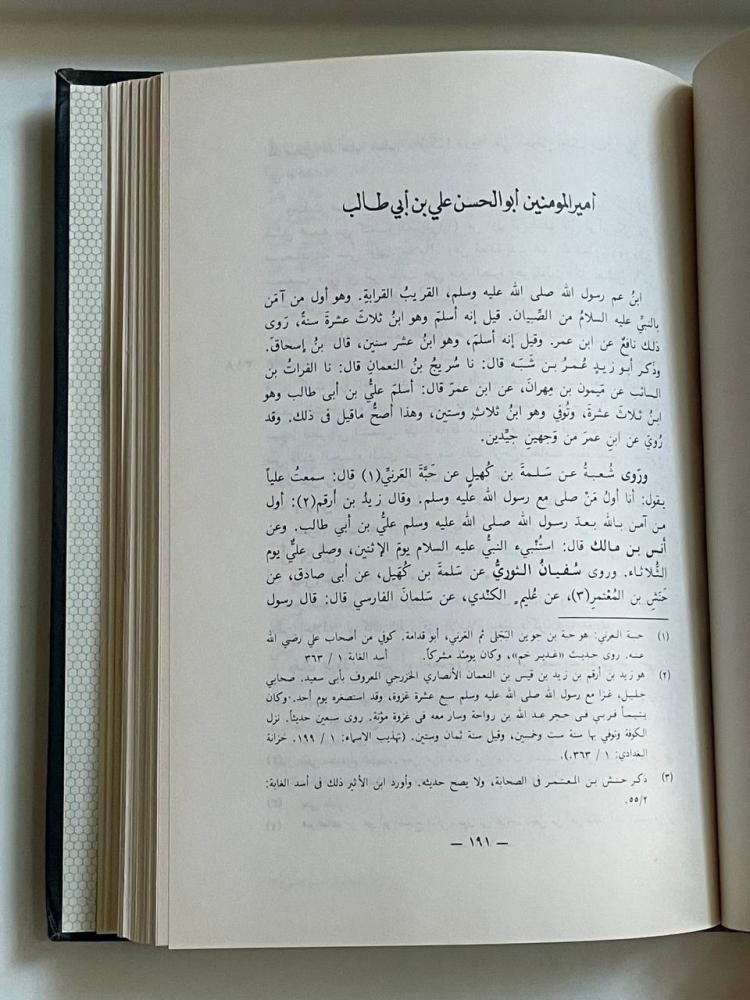 أمير المومنين أبو الحسن علي بن أبي طالب
ابنُ عم رسول الله صلى الله عليه وسلم، القريبُ القرابةِ. وهو أول من آمَن
بالنبيِّ عليه السلامُ من الصِّبيان. قيل إنه أسلمَ وهو ابنُ ثلاثَ عشرةَ سنةً، رَوى
ذلك نافعٌ عن ابن عمر. وقيل إنه أسلمَ، وهو ابنُ عشرِ سنين، قال بنُ إسحاقَ.
وذكر أبو زيدٍ عُمَرُ بن شَبَه قال: نا سُريجُ بنُ النعمان قال: نا الفراتُ بن
السائب عن مَيمون بن مِهرانَ، عن ابن عمرَ قال: أسلمَ عليُّ بن أبى طالب وهو
ابنُ ثلاثَ عشرةَ، وتُوفي وهو ابنُ ثلاثٍ وستين، وهذا أصحُّ ماقيل فى ذلك. وقد
رُويَ عن ابنِ عمرَ من وَجهينِ جيِّدين.
ورَوى شُعبةُ عن سَلمةَ بن كُهيلٍ عن حَبَّةَ العَرنيِّ(١) قال: سمعتُ علياً
يقول: أنا أولُ مَنْ صلى مع رسول الله عليه وسلم. وقال زيدُ بن أرقم(٢): أول
من آمن بالله بعدَ رسول الله صلى الله عليه وسلم عليُّ بن أبي طالب. وعن
أنس بن مالك قال: استُنْبيء النبيُّ عليه السلام يومَ الإثنين، وصلى عليٌّ يومَ
الثُّلاثاء. وروى سُفيانُ الثوريُّ عن سَلمةَ بن كُهَيل، عن أبى صادق، عن
حَنَشِ بن المُعْتمرِ(٣)، عن عُليمٍ الكَندي، عن سَلمانَ الفارسي قال: قال رسول
(١) حبة العرني: هو حبة بن جوين البَجَلى ثم العَرني، أبو قدامة. كوفي من أصحاب علي رضي الله
عنه. روى حديث «غدير خم»، وكان يومئذ مشركاً. أسد الغابة ١ / ٣٦٣
(٢) هو زيد بن أرقم بن زيد بن قيس بن النعمان الأنصاري الخزرجي المعروف بأبى سعيد. صحابي
جليل، غزا مع رسول الله صلى الله عليه وسلم سبع عشرة غزوة، وقد استصغره يوم أحد. وكان
يتيماً فربي فى حجر عبد الله بن رواحة وسار معه فى غزوة مؤتة. روى سبعين حديثاً. نزل
الكوفة وتوفي بها سنة ست وخمسين، وقيل سنة ثمان وستين. (تهذيب الاسماء: ١ / ١٩٩. خزانة
البغدادي: ١ / ٣٦٣.).
(٣) ذكر حنش بن المعتمر فى الصحابة، ولا يصح حديثه. وأورد ابن الأثير ذلك فى أسد الغابة:
٥٥/٢.
— ١٩١ —